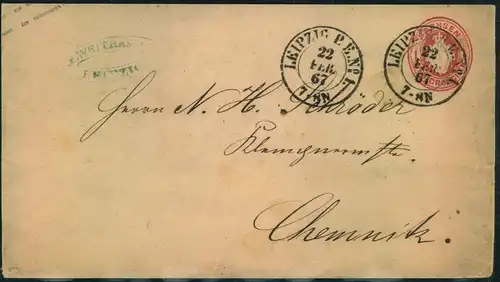 LEIPZIG
LEIPZIG P.E.No.1.
22
FEB.
67
7-8N
LEIPZIG
22
FEB.
67
7-8N
Herrn N. H. Schröder
Klempnermstr.
Chemnitz.